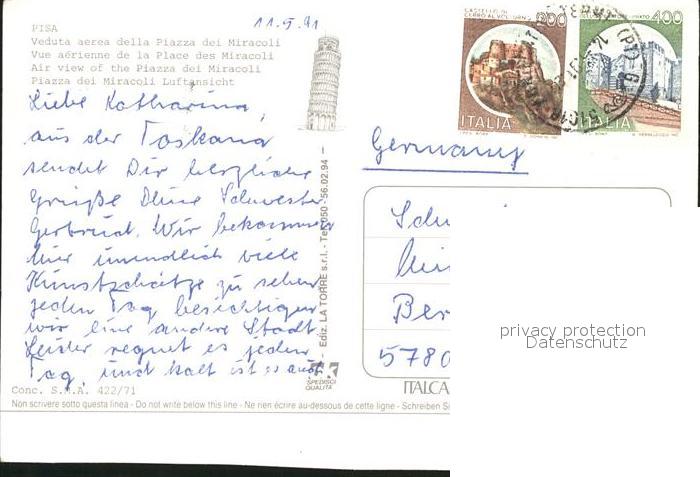 11.5.91
PISA
Veduta aerea della Piazza dei Miracoli
Vue aérienne de la Place des Miracoli
Air view of the Piazza dei Miracoli
Piazza dei Miracoli Luftansicht
Liebe Katharina,
aus der Toskana
sendet Dir herzliche
Grüße Deine Schwester
Gertrud. Wir bekommen
hier unendlich viele
Kunstschätze zu sehen
jeden Tag besichtigen
wir eine andere Stadt
Leider regnet es jeden
Tag, und kalt ist es auch
Conc. S.M.A. 422/71
Non scrivere sotto questa linea - Do not write below this line - Ne rien écrire au-dessous de cette ligne - Schreiben Si
Ediz. LA TORRE s.r.l. - Tel. 050 - 56.02.94
SPEDISCI
QUALITÀ
CERRO AL VOLTURNO
ITALIA
400
ITALIA
Germany
Ber
5780
ITALCA
privacy protection
Datenschutz